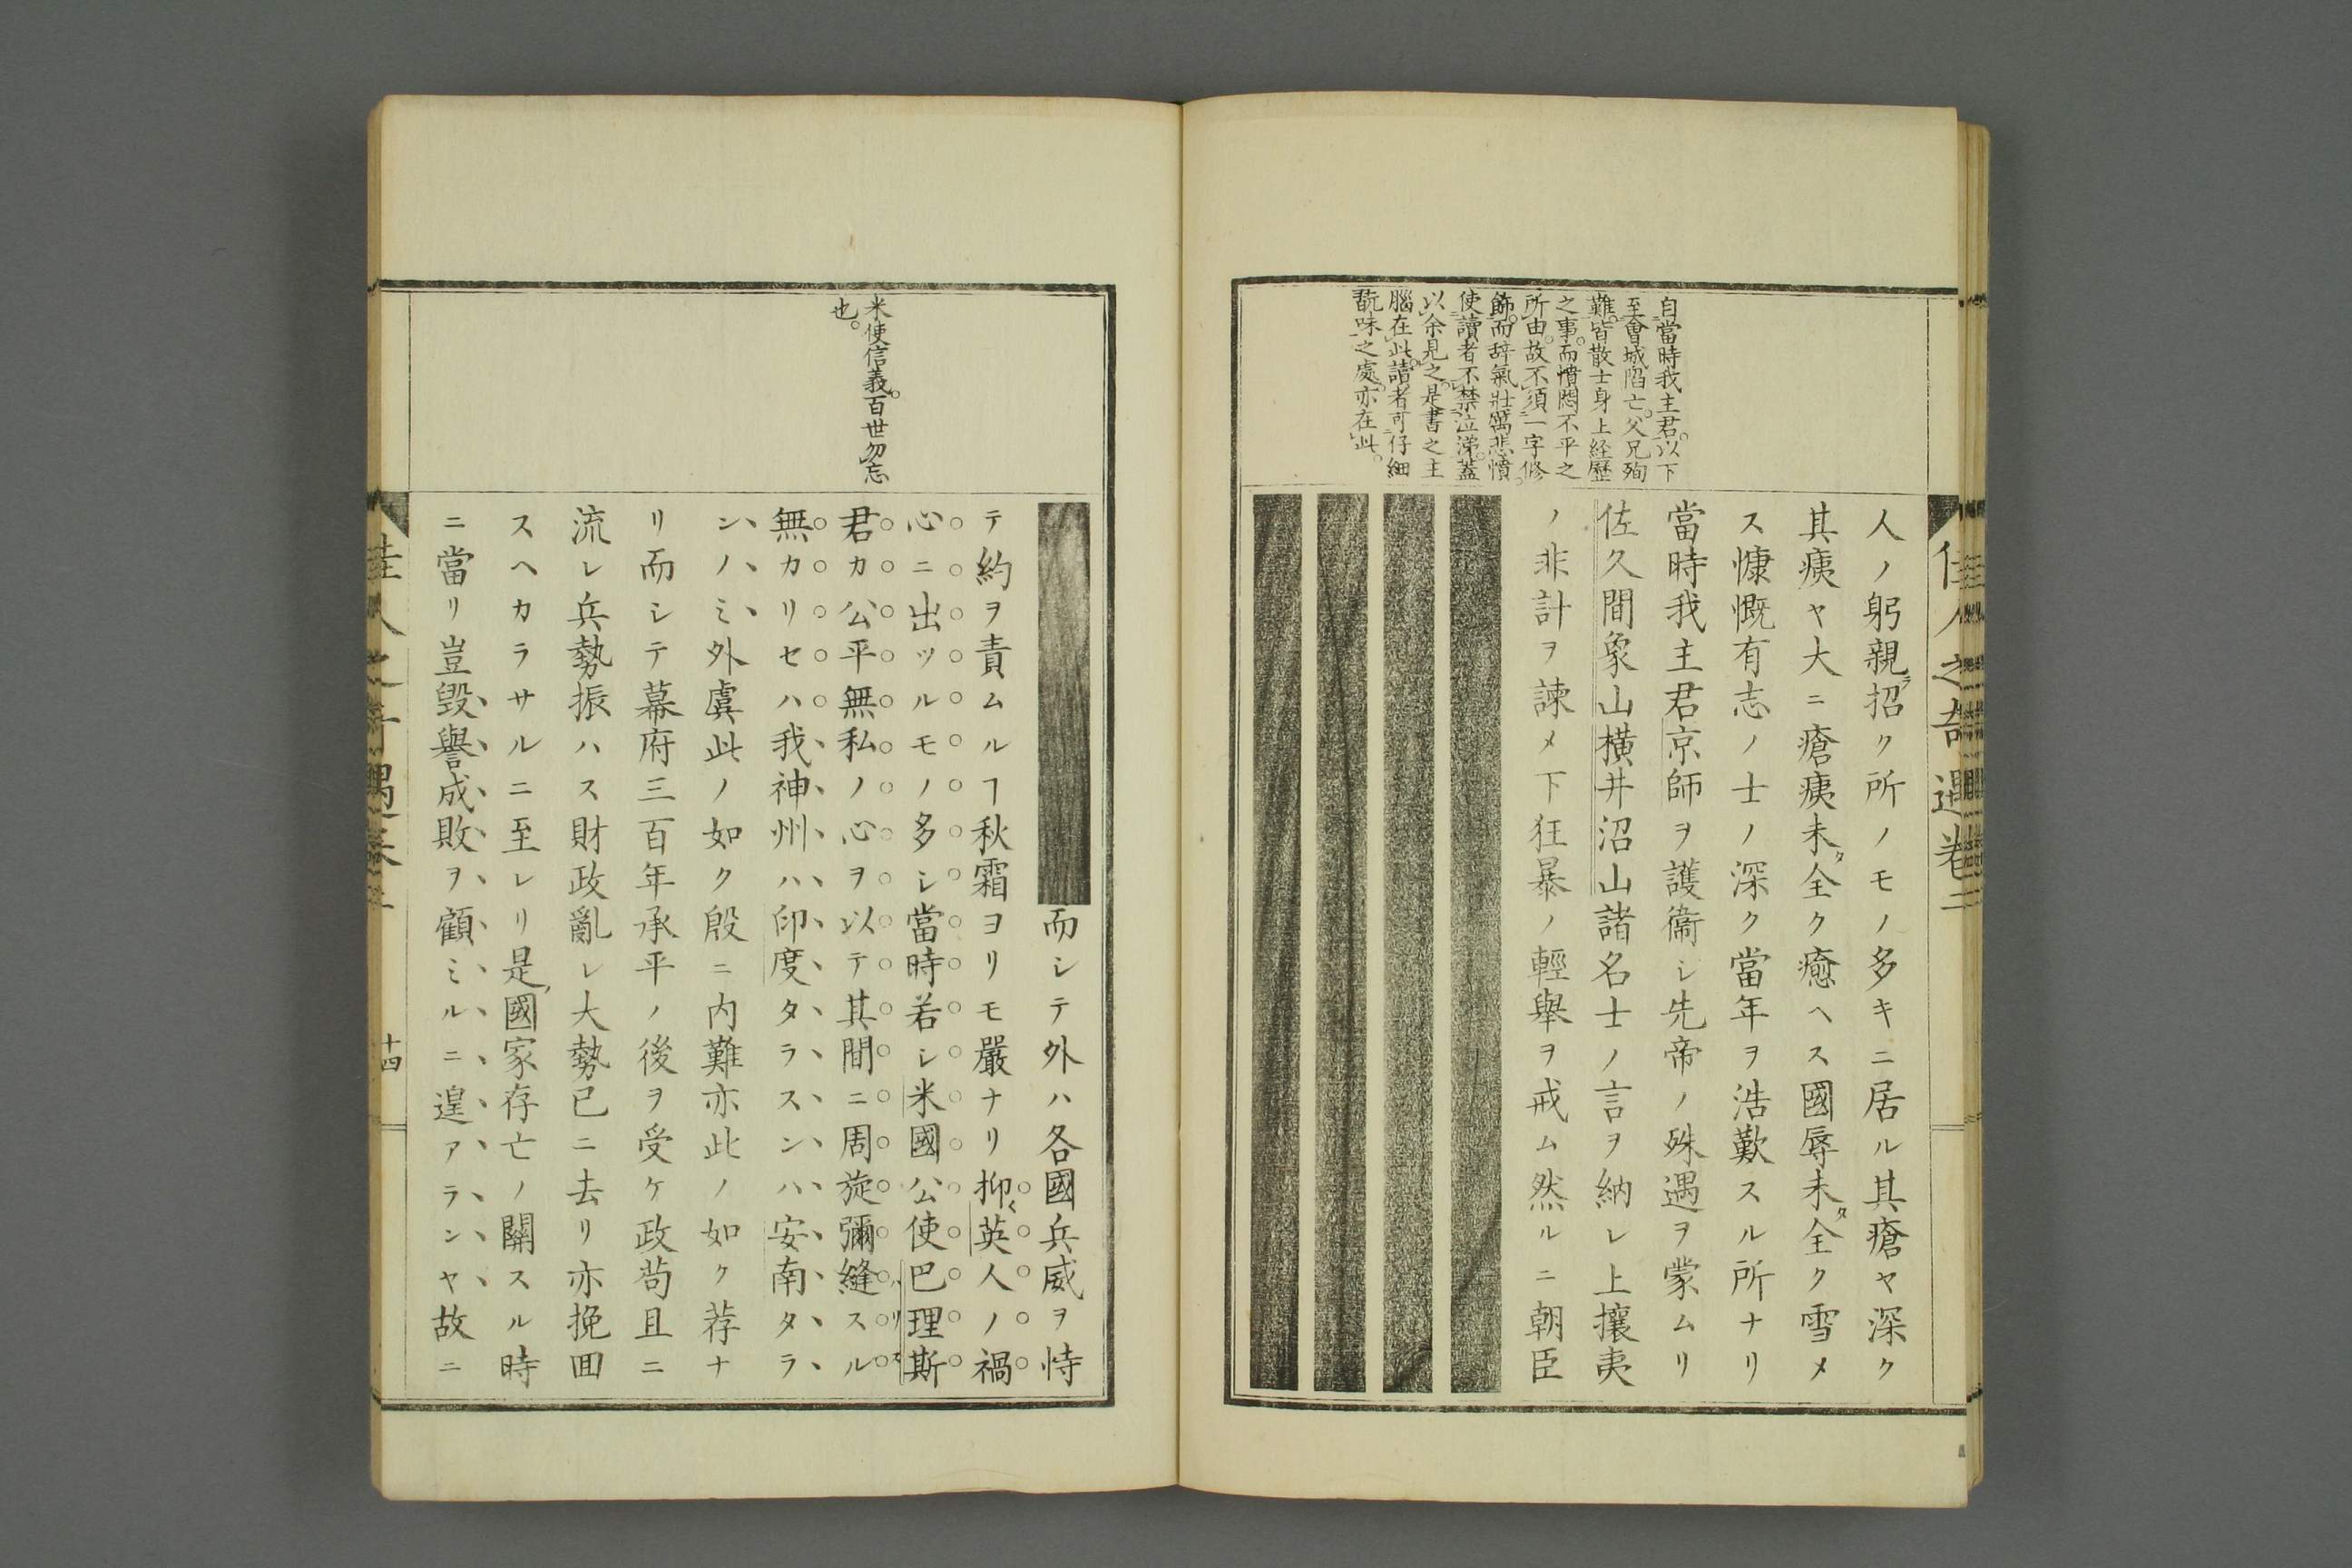 佳人之奇遇卷二
自當時我主君。以下
至會城陷亡。父兄殉
難。皆散士身上経歷
之事。而憤悶不平之
所由。故不須一字修
飾。而辞氣壯厲悲憤。
使讀者不禁泣涕。蓋
以余見之。是書之主
腦在此。請者可仔細
翫味之處。亦在此。
人ノ躬親ラ招ク所ノモノ多キニ居ル其瘡ヤ深ク
其痍ヤ大ニ瘡痍未タ全ク癒ヘス國辱未タ全ク雪メ
ス慷慨有志ノ士ノ深ク當年ヲ浩歎スル所ナリ
當時我主君京師ヲ護衞シ先帝ノ殊遇ヲ蒙ムリ
佐久間象山横井沼山諸名士ノ言ヲ納レ上攘夷
ノ非計ヲ諫メ下狂暴ノ輕舉ヲ戒ム然ルニ朝臣
米使信義。百世勿忘
也。
而シテ外ハ各國兵威ヲ恃
テ約ヲ責ムルヿ秋霜ヨリモ嚴ナリ抑〱英人ノ禍
心ニ出ツルモノ多シ當時若シ米國公使巴理斯ハリス
君カ公平無私ノ心ヲ以テ其間ニ周旋彌縫スル
無カリセハ我神州ハ印度タラスンハ安南タラ
ンノミ外虞此ノ如ク殷ニ内難亦此ノ如ク荐ナ
リ而シテ幕府三百年承平ノ後ヲ受ケ政苟且ニ
流レ兵勢振ハス財政亂レ大勢已ニ去リ亦挽回
スヘカラサルニ至レリ是ノ國家存亡ノ關スル時
ニ當リ豈毀譽成敗ヲ顧ミルニ遑アランヤ故ニ
佳人之奇遇卷二
十四